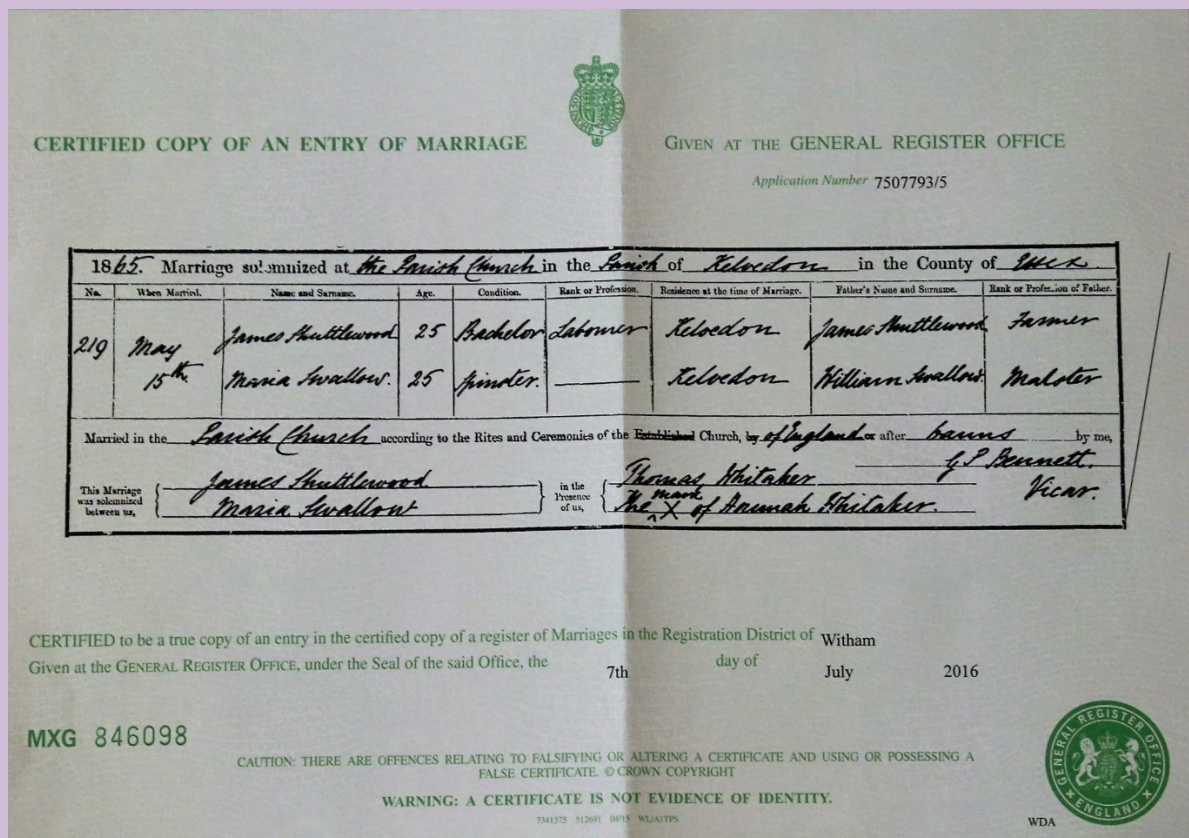 CERTIFIED COPY OF AN ENTRY OF MARRIAGE
GIVEN AT THE GENERAL REGISTER OFFICE
Application Number 7507793/5
1865. Marriage solemnized at the Parish Church in the Parish of Kelvedon in the County of Essex
No. When Married. Name and Surname. Age. Condition. Rank or Profession. Residence at the time of Marriage. Father's Name and Surname. Rank or Profession of Father.
219 May 15th James Shuttlewood 25 Bachelor Labourer Kelvedon James Shuttlewood Farmer
Maria Swallow. 25 Spinster. Kelvedon William Swallow. Malster
Married in the Parish Church according to the Rites and Ceremonies of the Established Church, by of England or after banns by me,
G P Bennett.
Vicar.
This Marriage was solemnized between us,
James Shuttlewood
Maria Swallow
in the Presence of us,
Thomas Whitaker
The mark X of Hannah Whitaker.
CERTIFIED to be a true copy of an entry in the certified copy of a register of Marriages in the Registration District of Witham
Given at the GENERAL REGISTER OFFICE, under the Seal of the said Office, the 7th day of July 2016
MXG 846098
CAUTION: THERE ARE OFFENCES RELATING TO FALSIFYING OR ALTERING A CERTIFICATE AND USING OR POSSESSING A
FALSE CERTIFICATE. © CROWN COPYRIGHT
WARNING: A CERTIFICATE IS NOT EVIDENCE OF IDENTITY.
GENERAL REGISTER OFFICE
ENGLAND
WDA